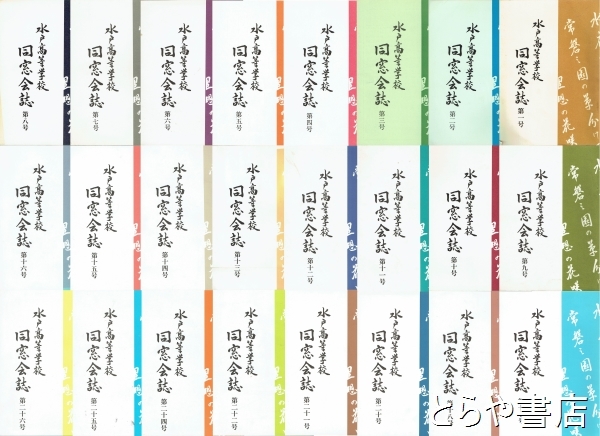 水戸高等学校
同窓会誌
第一号
水戸高等学校
同窓会誌
第二号
水戸高等学校
同窓会誌
第三号
水戸高等学校
同窓会誌
第四号
水戸高等学校
同窓会誌
第五号
水戸高等学校
同窓会誌
第六号
水戸高等学校
同窓会誌
第七号
水戸高等学校
同窓会誌
第八号
水戸高等学校
同窓会誌
第九号
水戸高等学校
同窓会誌
第十号
水戸高等学校
同窓会誌
第十一号
水戸高等学校
同窓会誌
第十二号
水戸高等学校
同窓会誌
第十三号
水戸高等学校
同窓会誌
第十四号
水戸高等学校
同窓会誌
第十五号
水戸高等学校
同窓会誌
第十六号
水戸高等学校
同窓会誌
水戸高等学校
同窓会誌
水戸高等学校
同窓会誌
水戸高等学校
同窓会誌
第二十一号
水戸高等学校
同窓会誌
水戸高等学校
同窓会誌
第二十四号
水戸高等学校
同窓会誌
第二十五号
水戸高等学校
同窓会誌
第二十六号
とらや書店